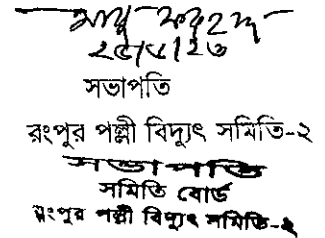 ২৫/৮/২৩
সভাপতি
রংপুর পল্লী বিদ্যুৎ সমিতি-২
সভাপতি
সমিতি বোর্ড
রংপুর পল্লী বিদ্যুৎ সমিতি-২